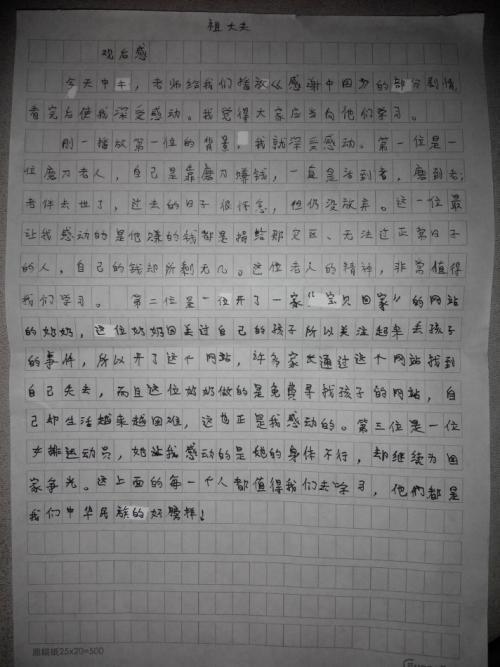 祖大夫
观后感
今天中午，老师给我们播放《感谢中国》的部分剧情，
看完后使我深受感动。我觉得大家应当向他们学习。
刚一播放第一位的背景，我就深受感动。第一位是一
位磨刀老人，自己是靠磨刀赚钱，一直是活到老，磨到老；
老伴去世了，过去的日子很怀念，但仍没放弃。这一位最
让我感动的是他赚的钱都是捐给那灾区、无法过正常日子
的人，自己的钱却所剩无几。这位老人的精神，非常值得
我们学习。 第二位是一位开了一家“宝贝回家”的网站
的奶奶，这位奶奶因关过自己的孩子所以关注起来丢孩子
的事件，所以开了这个网站，许多家长通过这个网站找到
自己失去，而且这位奶奶做的是免费寻找孩子的网站，自
己却生活越来越困难，这也正是我感动的。第三位是一位
排运动员，她让我感动的是她的身体不行，却继续为国
家争光。这上面的每一个人都值得我们去学习，他们都是
我们中华民族的好榜样！
稿纸25x20=500